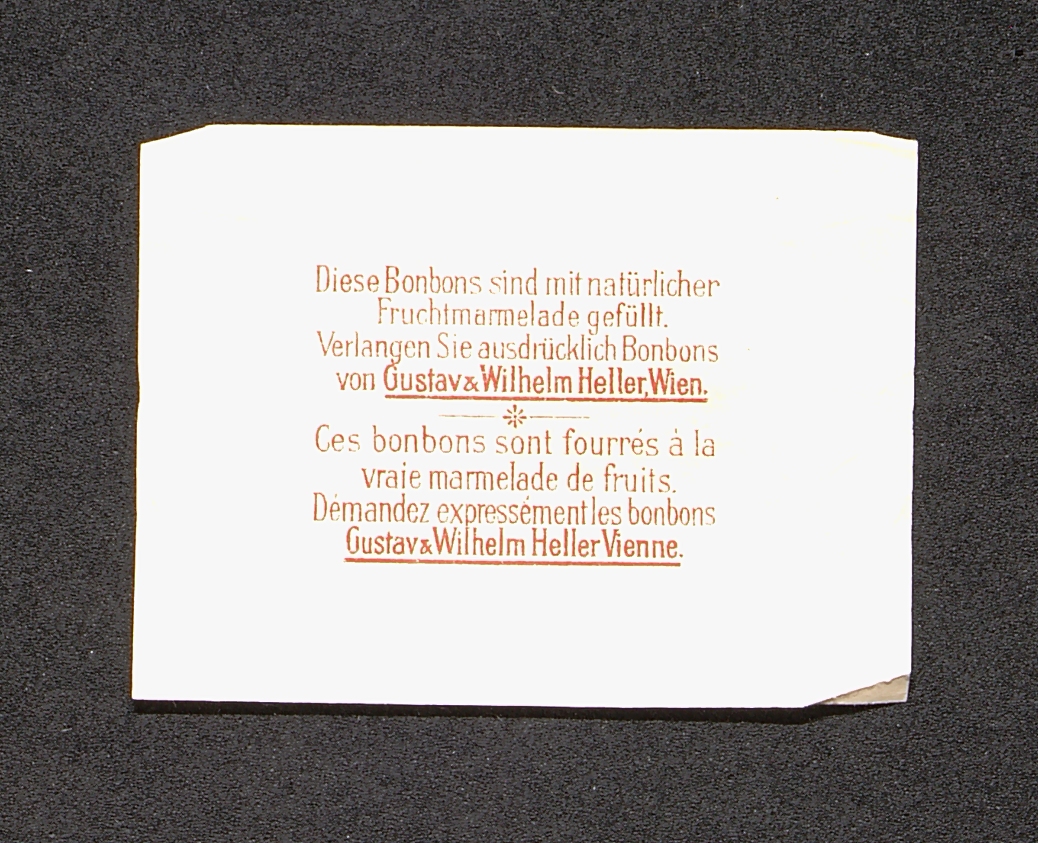 Diese Bonbons sind mit natürlicher
Fruchtmarmelade gefüllt.
Verlangen Sie ausdrücklich Bonbons
von Gustav & Wilhelm Heller, Wien.
Ces bonbons sont fourrés à la
vraie marmelade de fruits.
Démandez expressément les bonbons
Gustav & Wilhelm Heller Vienne.